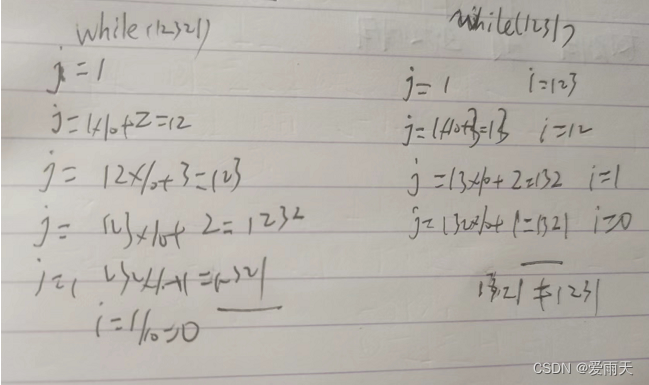 while(12321)
j=1
j=1×10+2=12
j= 12×10+3=123
j= 123×10+ 2=1232
j= 1232×10+1=12321
i=1/10=0
while(1231)
j= 1 i=123
j=1×10+3=13 i=12
j=13×10+2=132 i=1
j=132×10+1=1321 i=0
1321≠1231
CSDN @爱雨天